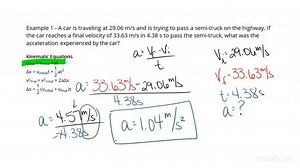 Example 1 - A car is traveling at 29.06 m/s and is trying to pass a semi-truck on the highway. If
the car reaches a final velocity of 33.63 m/s in 4.38 s to pass the semi-truck, what was the
acceleration experienced by the car?
Kinematic Equations
Δx = v_initial t + ½ at²
v²final = v²initial + 2aΔx
Δx = ½ (v_initial + v_final)t
a = Vf - Vi / t
a = 33.63 m/s - 29.06 m/s / 4.38s
a = 4.57 m/s / 4.38s
a = 1.04 m/s²
Vi = 29.06 m/s
Vf = 33.63 m/s
t = 4.38s
a = ?